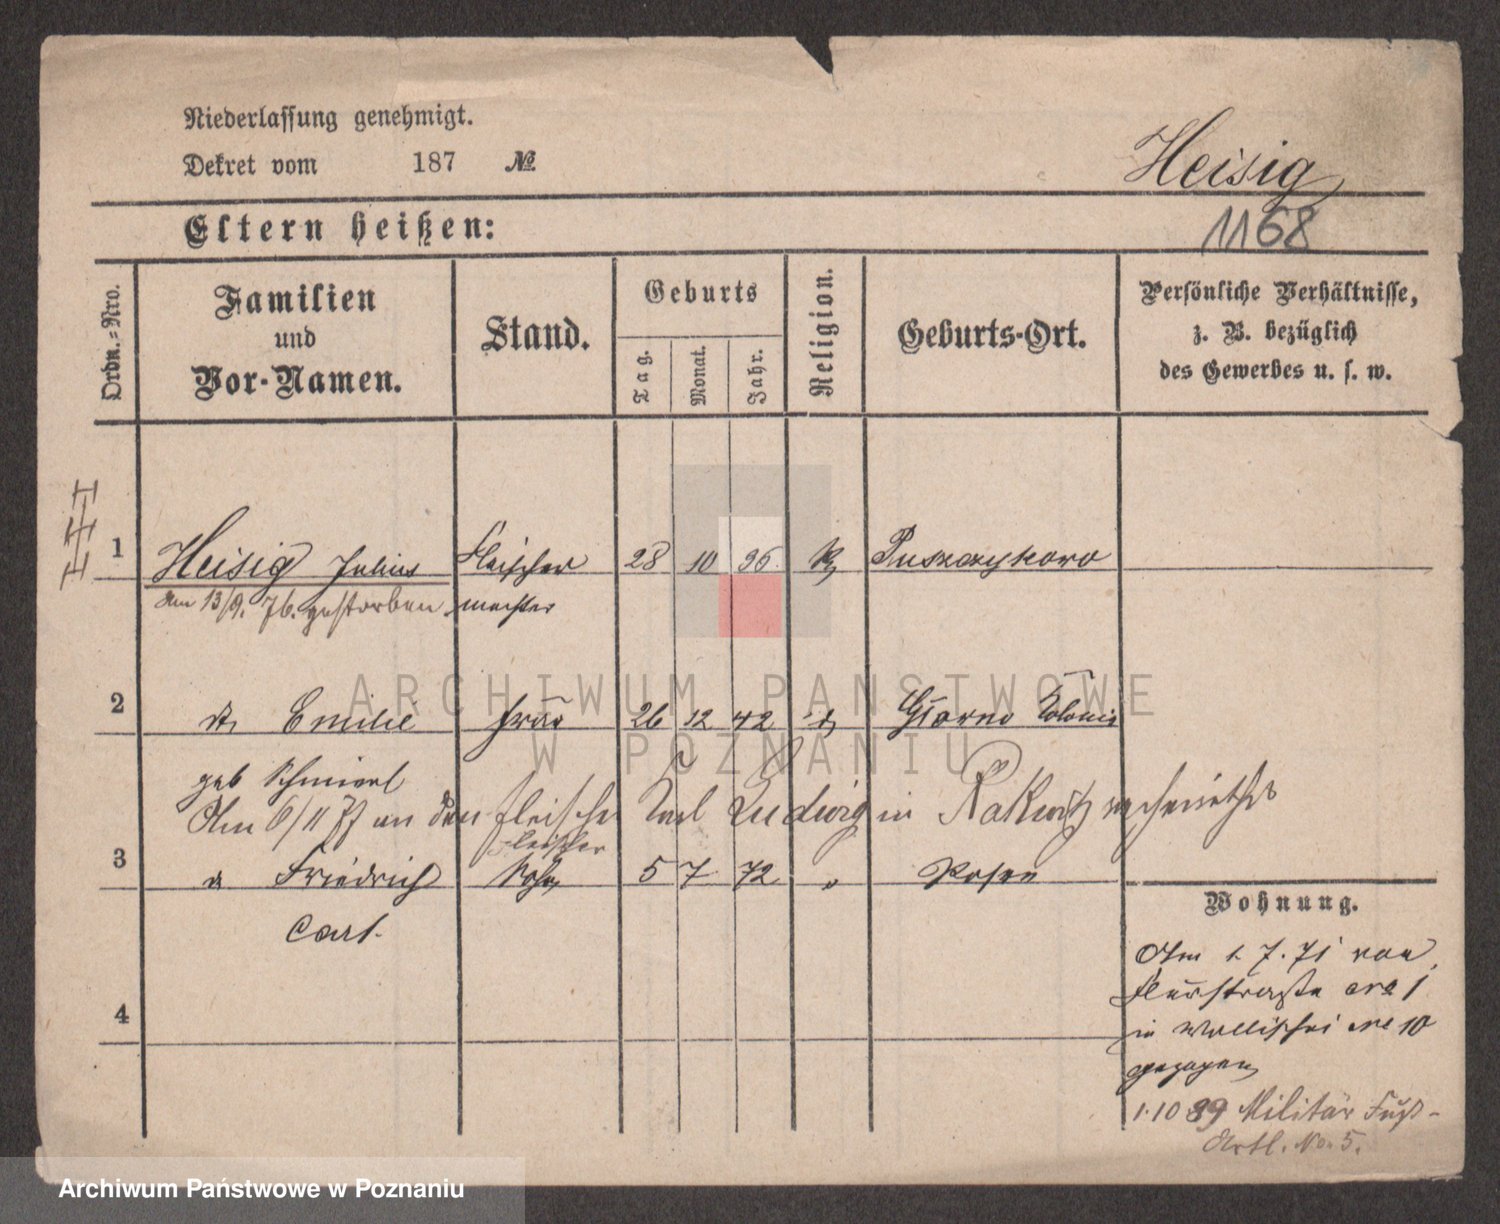 Niederlassung genehmigt.
Dekret vom 187 №
Heisig
1168
Eltern heißen:
Ordn.-Nro.
Familien
und
Vor-Namen.
Stand.
Geburts
Tag.
Monat.
Jahr.
Religion.
Geburts-Ort.
Persönliche Verhältnisse,
z. B. bezüglich
des Gewerbes u. s. w.
1 Heisig Julius Fleischer 28 10 36 k Puszczykowo
Am 13/9. 76. gestorben. meister
2 Emilie Frau 26 12 42 Colonie
geb
Am 6/11 77 an den Fleischer Carl Ludwig in Rakwitz
Fleischer
3 Friedrich Sohn 5 7 72 " Posen
Carl
4
Wohnung.
Am 1. 7. 71 von
No 1
in Wallischei No 10
gezogen
1. 10 89 Militär Fuß-
Artl. No. 5.
ARCHIWUM PAŃSTWOWE
W POZNANIU
Archiwum Państwowe w Poznaniu